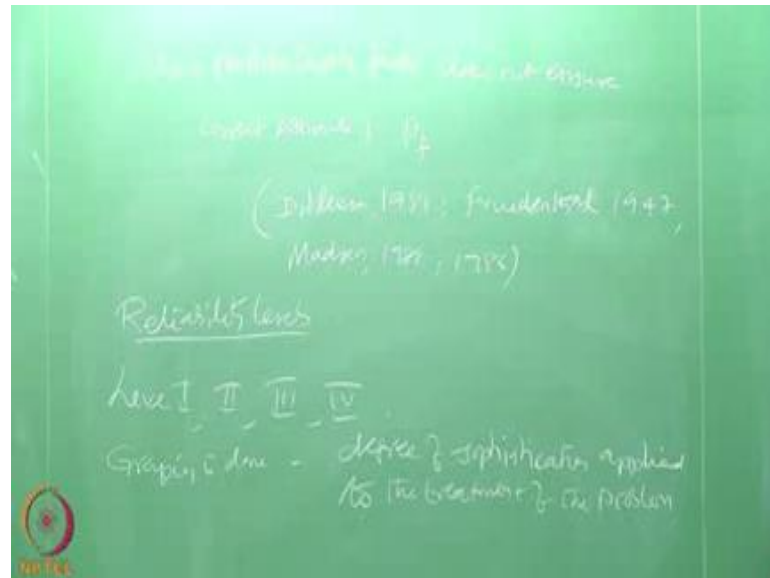 does not ensure
correct P_f
(Ditlevsen, 1981; Freudenthal 1947,
Madsen, 1986)
Reliability levels
Level I, II, III, IV.
Grouping is done - degree of sophistication applied
to the treatment of the problem
NPTEL